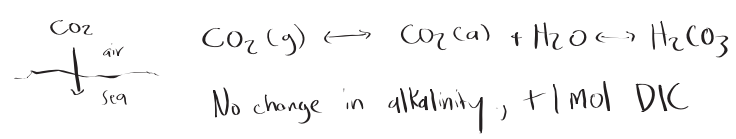 CO2
air
sea
CO2 (g) ⟷ CO2 (a) + H2O ⟷ H2CO3
No change in alkalinity, +1 mol DIC